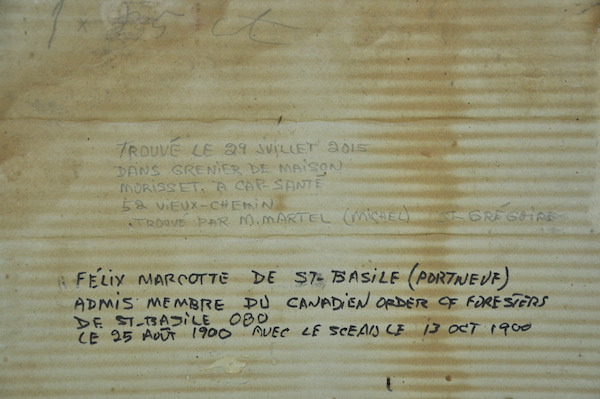 TROUVÉ LE 29 JUILLET 2015
DANS GRENIER DE MAISON
MORISSET. A CAP-SANTÉ
52 VIEUX-CHEMIN
. TROUVÉ PAR M. MARTEL (MICHEL) ST-GRÉGOIRE
FÉLIX MARCOTTE DE ST-BASILE (PORTNEUF)
ADMIS MEMBRE DU CANADIEN ORDER OF FORESTERS
DE ST-BASILE 080
LE 25 AOÛT 1900 AVEC LE SCEAU LE 13 OCT 1900